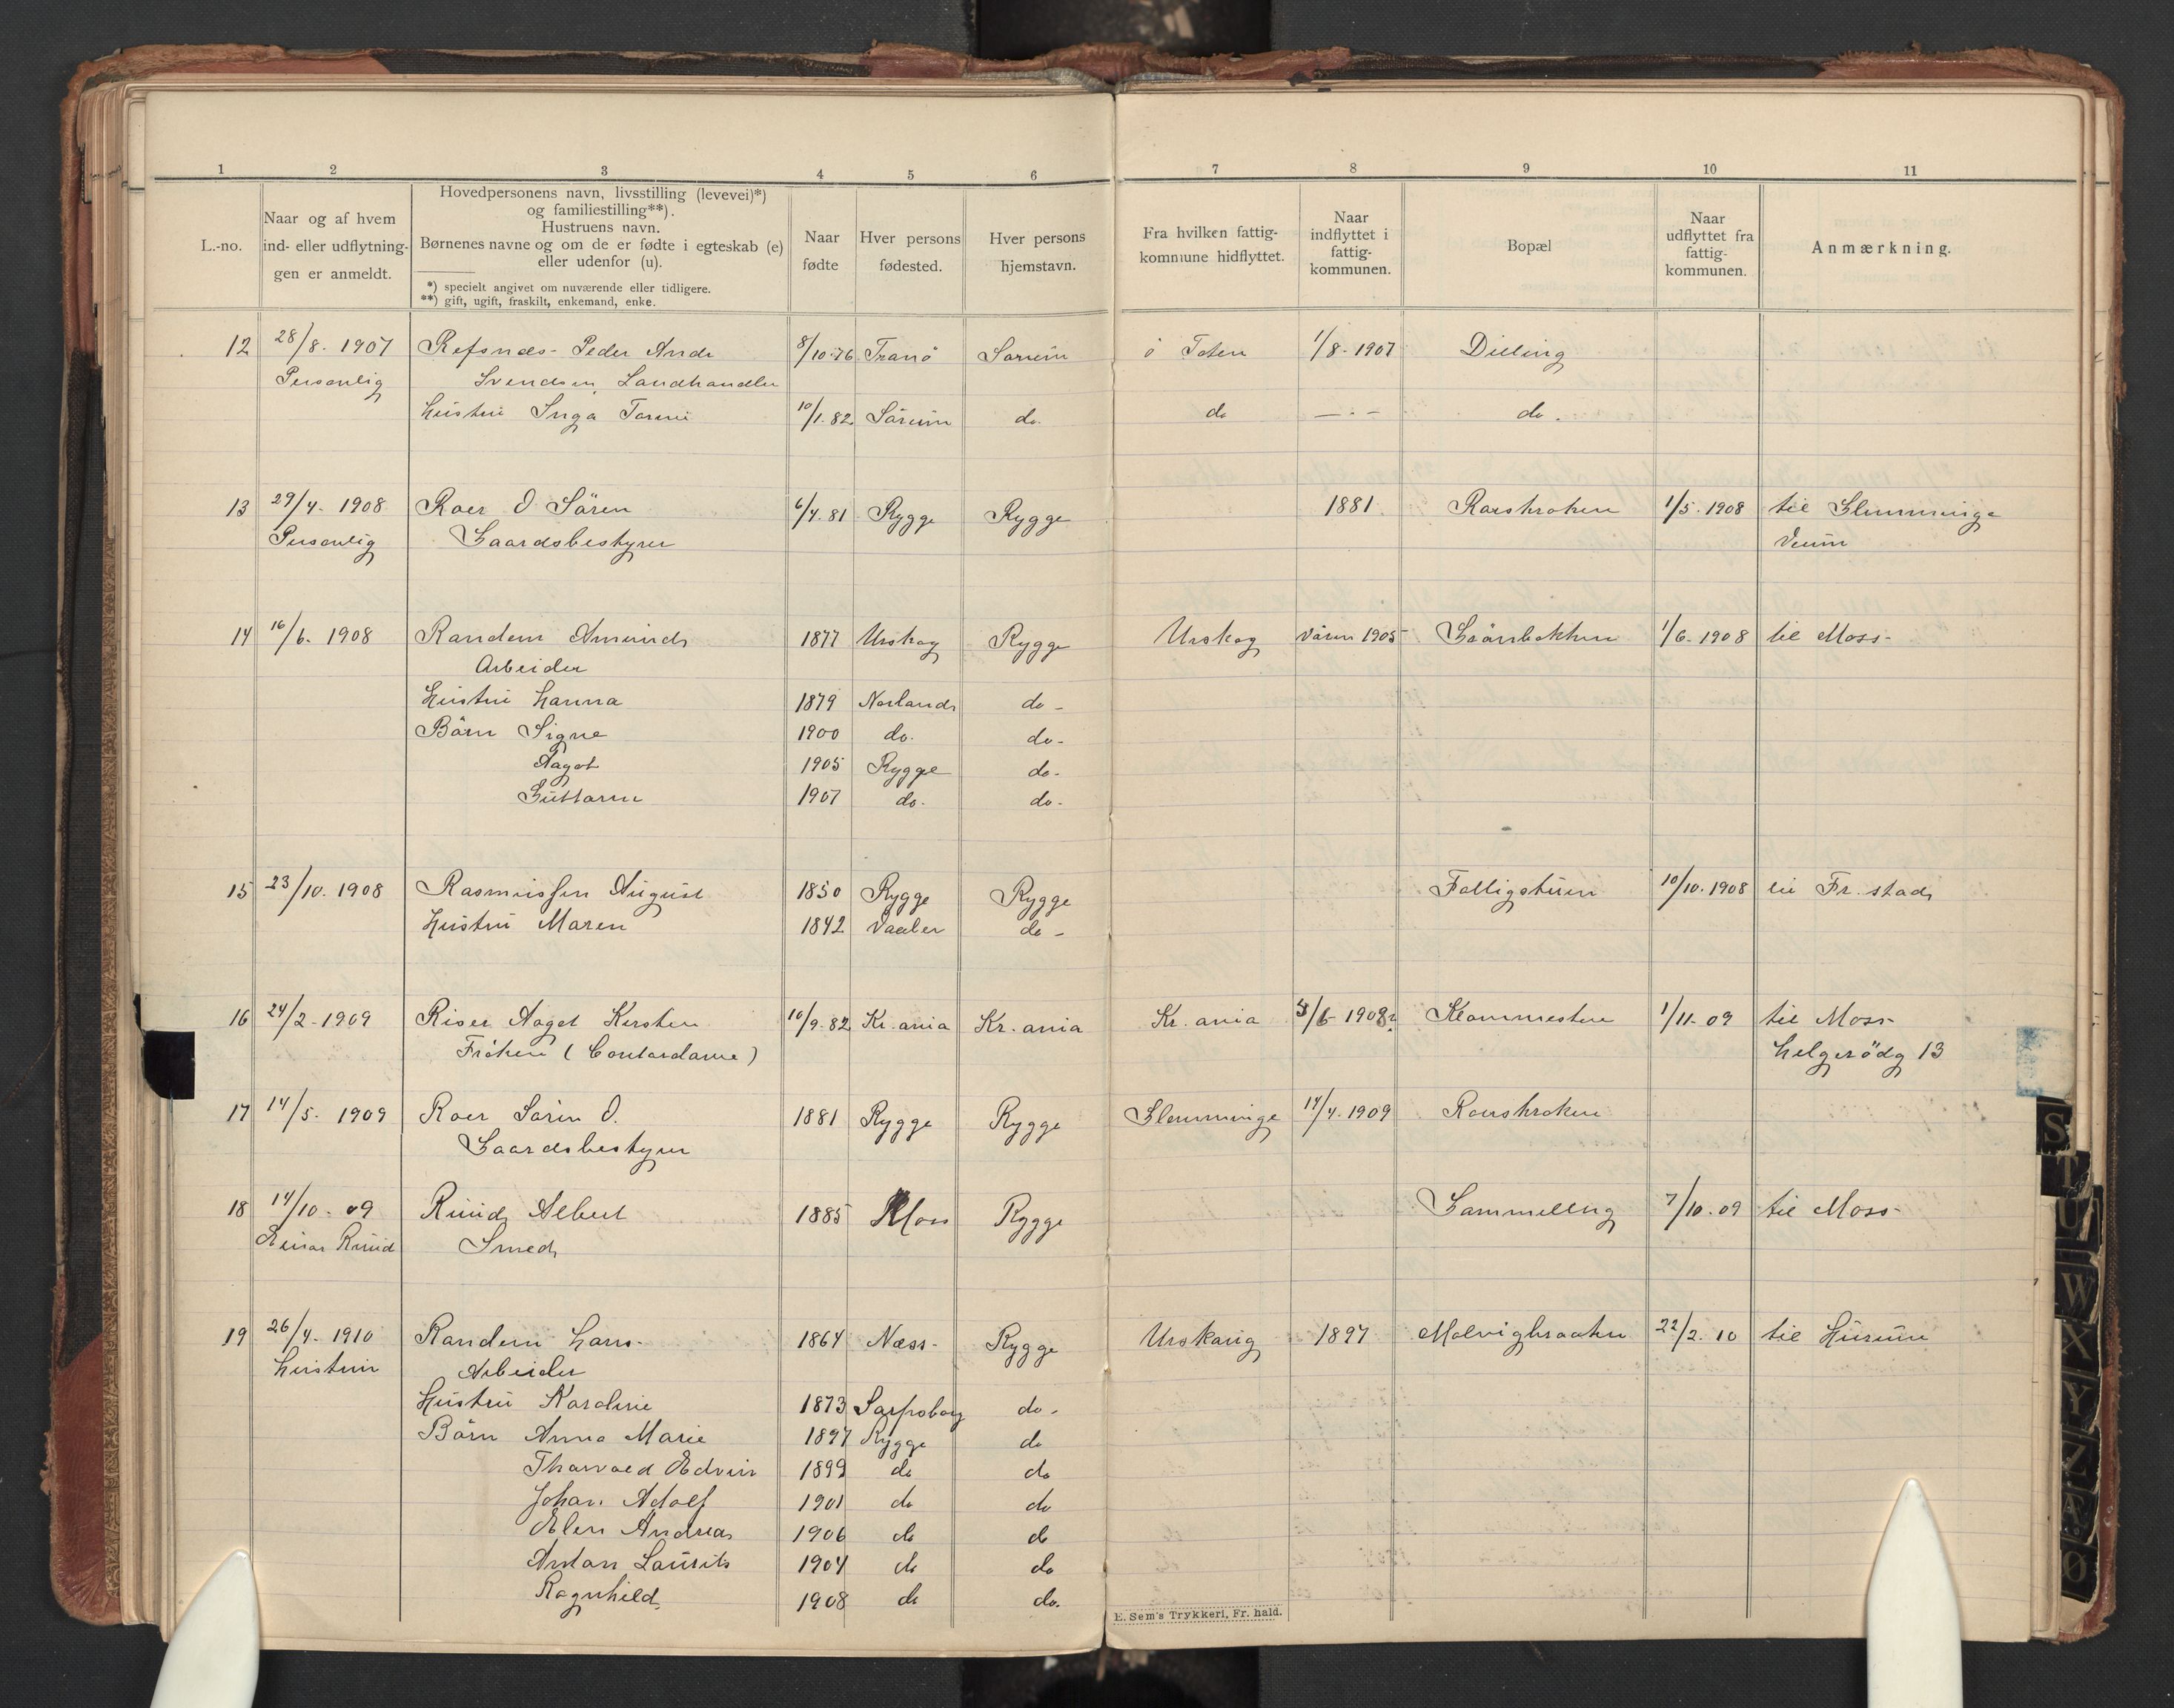 1 2 3 4 5 6 7 8 9 10 11
L.-no.
Naar og af hvem
ind- eller udflytnin-
gen er anmeldt.
Hovedpersonens navn, livsstilling (levevei)*)
og familiestilling**).
Hustruens navn.
Børnenes navne og om de er fødte i egteskab (e)
eller udenfor (u).
*) specielt angivet om nuværende eller tidligere.
**) gift, ugift, fraskilt, enkemand, enke.
Naar
fødte
Hver persons
fødested.
Hver persons
hjemstavn.
Fra hvilken fattig-
kommune hidflyttet.
Naar
indflyttet i
fattig-
kommunen.
Bopæl
Naar
udflyttet fra
fattig-
kommunen.
Anmærkning.
12 28/8. 1907 Refsnæs- Peder Andr 8/10.76 Tranö Sørum ö Toten 1/8-1907 Dilling
Personlig Svendsen Landhandler
Hustru Inga Tomine 10/1.82 Sörum do. do — . — do.
13 29/4. 1908 Roer O. Sören 6/4.81 Rygge Rygge 1881 Roerskroken 1/5.1908 til Glemminge
Personlig Gaardsbestyrer Veum
14 16/6. 1908 Randem Amund 1877 Urskog Rygge Urskog Våren 1905 Grönbakken 1/6-1908 til Moss-
Arbeider
Hustru Hanna 1879 Norland do -
Börn Signe 1900 do. do-
Aagot 1905 Rygge do-
Guttorm 1907 do. do-
15 23/10. 1908 Rasmussen August 1850 Rygge Rygge Fattighuset 10/10.1908 til Fr. stad
Hustru Maren 1842 Vaaler do -
16 24/2-1909 Riser Aagot Kirsten 10/9.82 Kr.ania Kr.ania Kr. ania 5/6-1908 Klommesten 1/11-09 til Moss-
Fröken (Contordame) Helgerödg 13
17 14/5. 1909 Roer Sören O. 1881 Rygge Rygge Glemminge 14/4.1909 Roerskroken
Gaardsbestyrer
18 14/10. 09 Ruud Albert 1885 Moss Rygge Gammelleng 7/10.09 til Moss-
Einar Ruud Smed
19 26/4. 1910 Randem Hans- 1864 Næss- Rygge Urskoug 1897 Molvigbraaten 22/2.10 til Hurum
Hustruen Arbeider
Hustru Karoline 1873 Sarpsborg do-
Börn Anna Marie 1897 Rygge do
Thorvald Edvin 1899 do do
Johan Adolf 1901 do do
Elen Andrea 1906 do do
Anton Laurits 1904 do do
Ragnhild 1908 do do.
E. Sem's Trykkeri, Fr. hald.
S
T
U
W
X
Y
Z
Æ
Ø